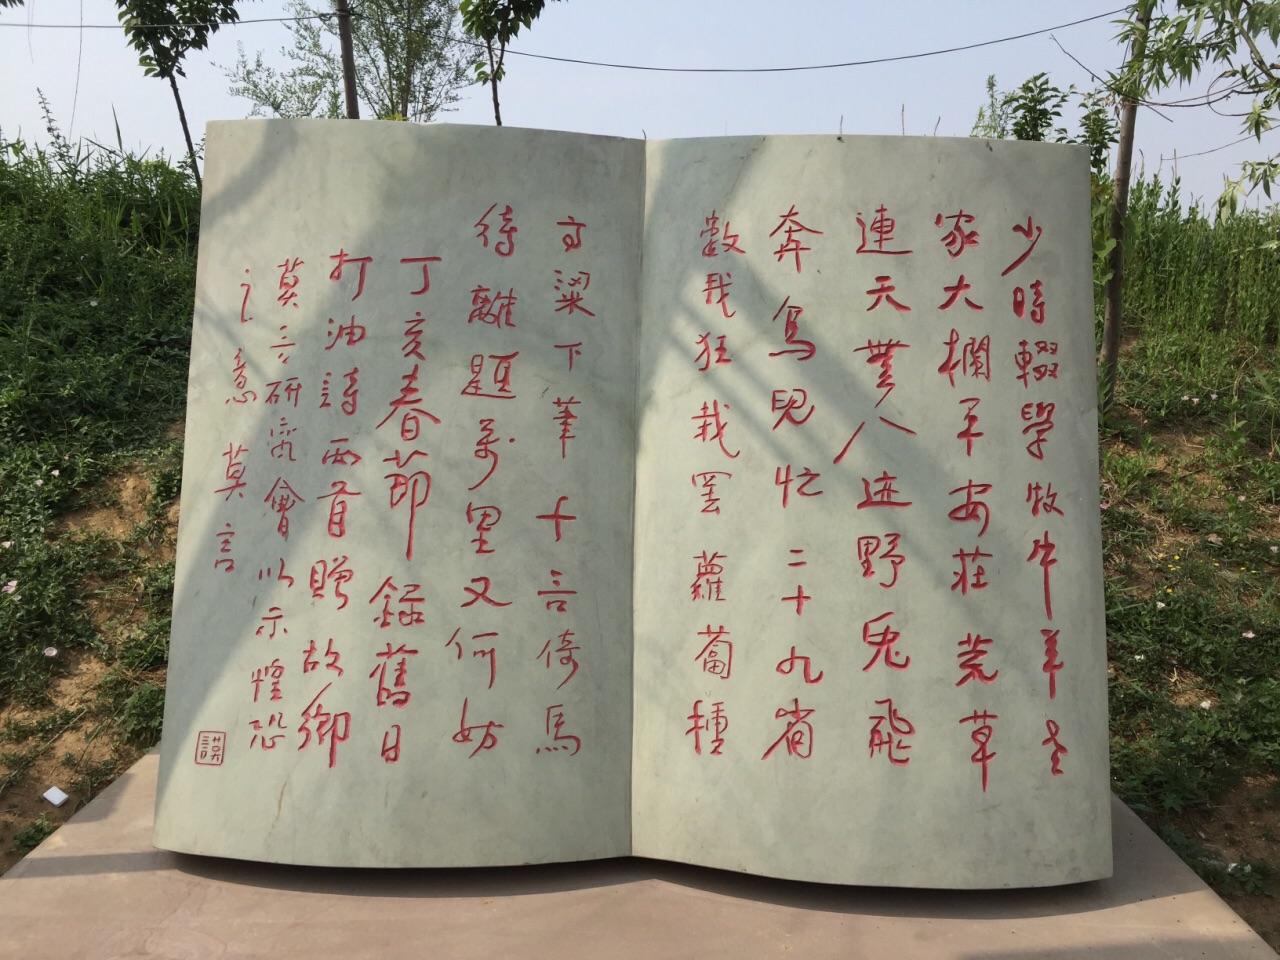 少時輟學牧牛羊老
家大欄平安莊荒草
連天無人迹野兔飛
奔鳥兒忙二十九省
數我狂栽罢蘿蔔種
高粱下筆千言倚馬
待離題萬里又何妨
丁亥春節錄舊日
打油詩兩首贈故鄉
莫言研究會以示惶恐
之意 莫言
莫言